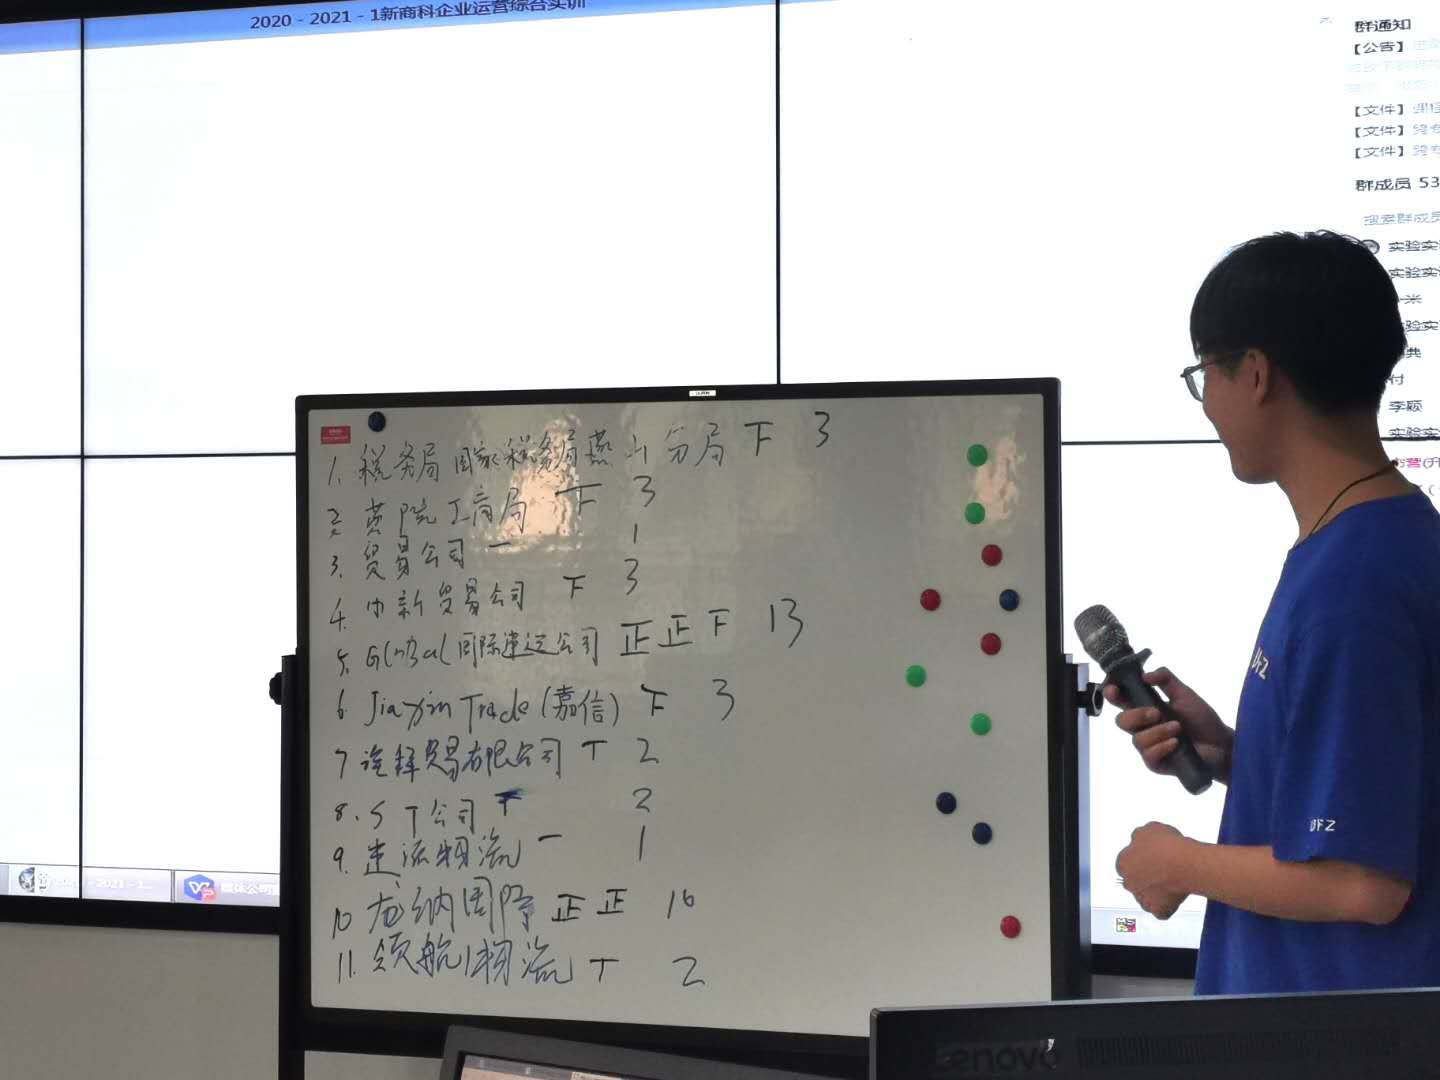 2020 - 2021 - 1新商科企业运营综合实训
群通知
【公告】
【文件】课程
【文件】跨专
【文件】跨专
群成员 53
搜索群成员
实验实
实验实
米
验实
典
付
李颖
实验实
营(升
1. 税务局 国家税务局燕 分局 下 3
2. 燕院工商局 下 3
3. 贸易公司 一 1
4. 中新贸易公司 下 3
5. Global国际速运公司 正正下 13
6. Jiaxin Trade (嘉信) 下 3
7 诠释贸易有限公司 丅 2
8. S T公司 丅 2
9. 速流物流 一 1
10 龙纳国际 正正 10
11. 领航物流 丅 2
DFZ
DFZ
- 2021 - 1...
媒体公司
Lenovo